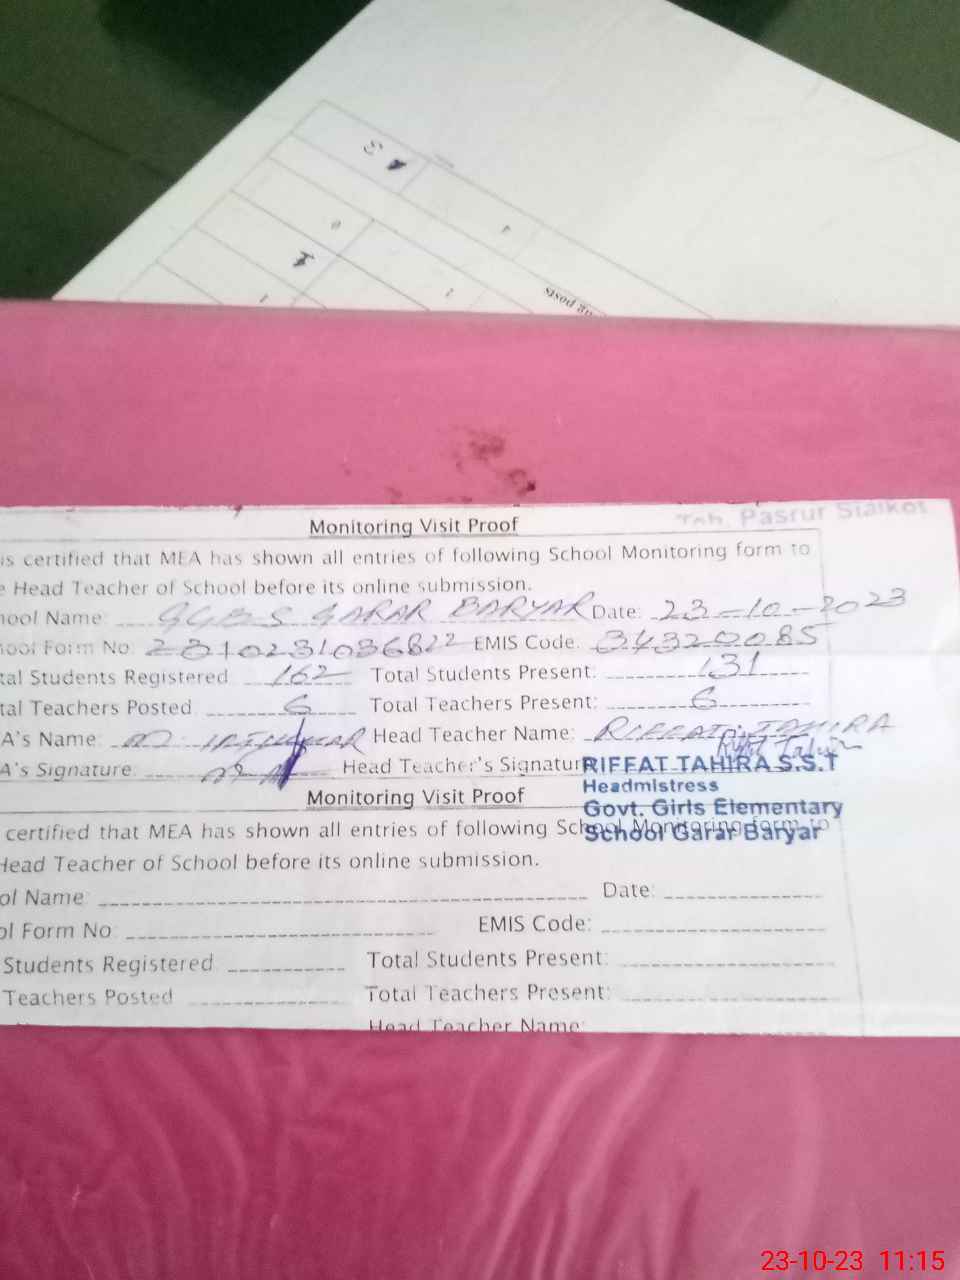 ng posts
Teh. Pasrur Sialkot
Monitoring Visit Proof
is certified that MEA has shown all entries of following School Monitoring form to
e Head Teacher of School before its online submission.
hool Name: GGES GARAR BARYAR Date: 23-10-2023
hool Form No: EMIS Code: 34320085
tal Students Registered 162 Total Students Present: 131
tal Teachers Posted 6 Total Teachers Present: 6
A's Name: M Head Teacher Name: RIFFAT TAHIRA
A's Signature: Head Teacher's Signature
Riffat Tahira
RIFFAT TAHIRA S.S.T
Headmistress
Govt. Girls Elementary
School Garar Baryar
Monitoring Visit Proof
certified that MEA has shown all entries of following School Monitoring form to
Head Teacher of School before its online submission.
ol Name: Date:
ol Form No: EMIS Code:
Students Registered Total Students Present:
Teachers Posted Total Teachers Present:
Head Teacher Name:
23-10-23 11:15